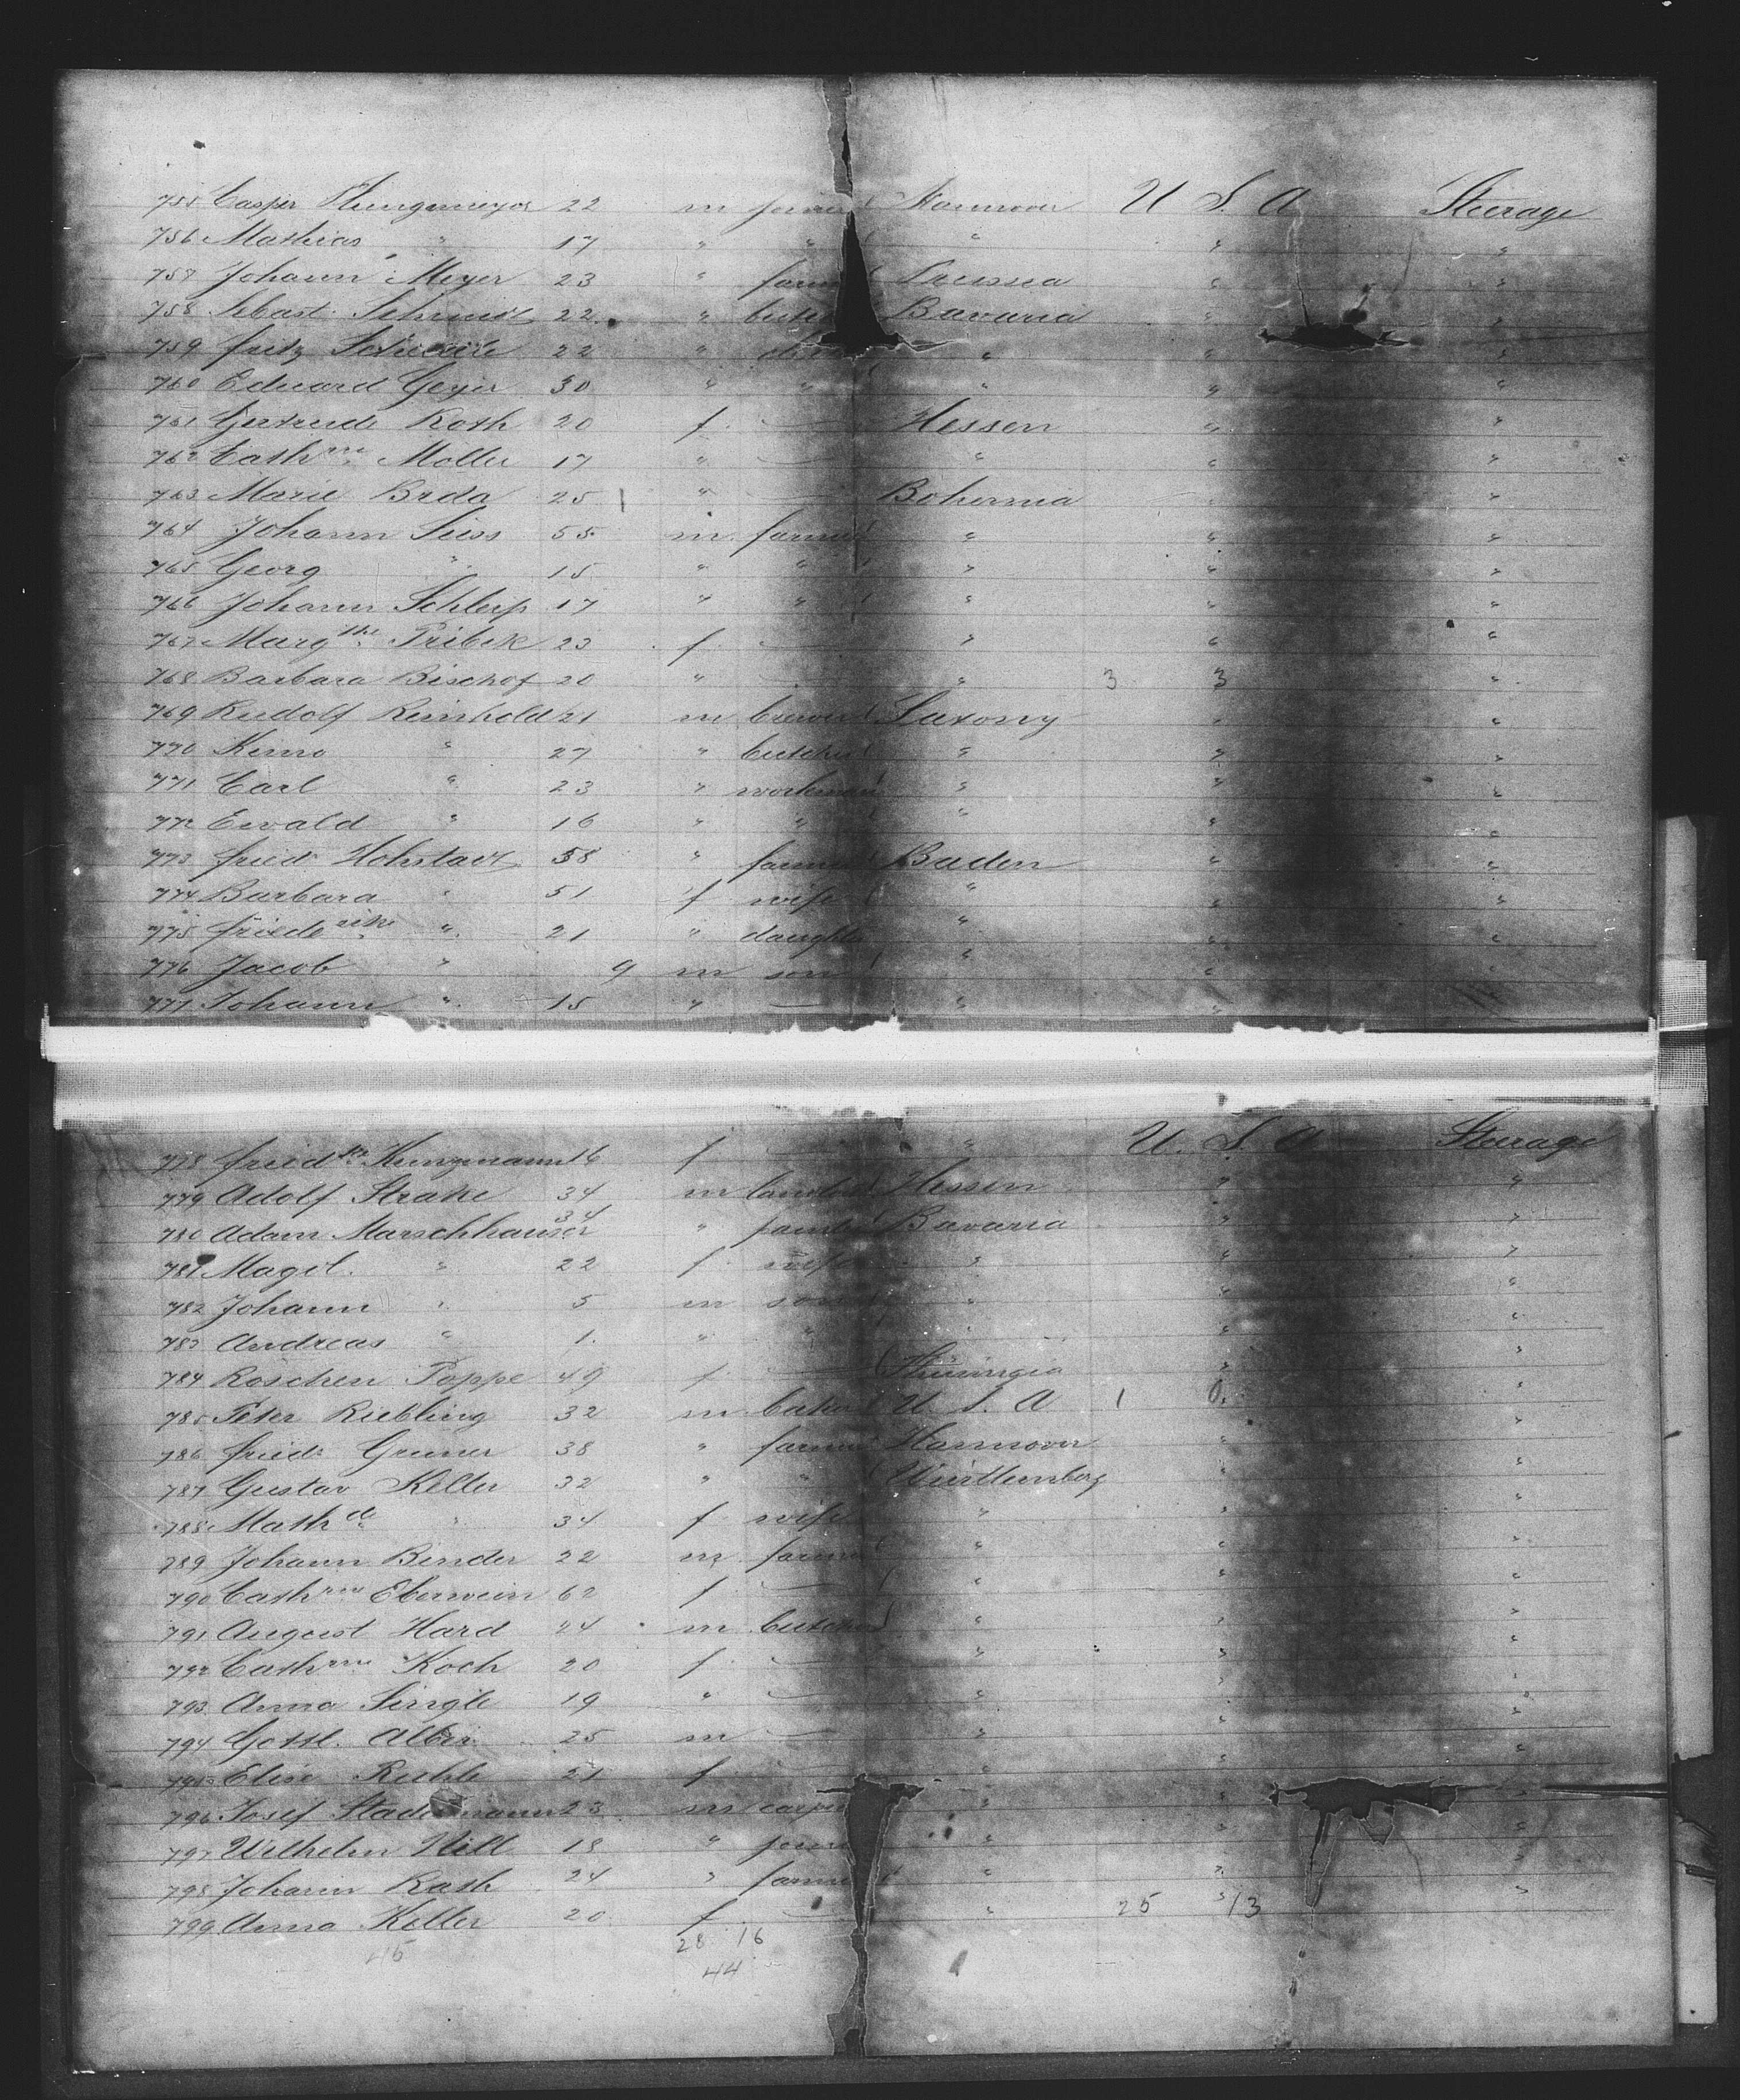 755 Casper 22 m farmer Hannover U S. A Steerage
756 Mathias " 17 " " " " "
757 Johann Meyer 23 " farm Prussia " "
758 Sebast. Schmidt 22 " butch Bavaria " "
759 Fritz 22 " " " "
760 Eduard Geyer 30 " " " " "
761 Gertrude Roth 20 f — Hessen " "
762 Cathne Moller 17 " — " " "
763 Marie Brda 25 " — Bohemia "
764 Johann Siess 55 m farmer " " "
765 Georg " 15 " " " " "
766 Johann Schleip 17 " " " " "
767 Margthe Pribek 23 f — " " "
768 Barbara Bischof 20 " — " 3 3 "
769 Rudolf Reinhold 21 m brewer Saxony " "
770 " 27 " butcher " " "
771 Carl " 23 " workman " " "
772 Ewald " 16 " " " " "
773 Fried. Hohstadt 58 " farmer Baden " "
774 Barbara " 51 f wife " " "
775 Friederike " 21 " daughter " " "
776 Jacob " 9 m son " " "
777 Johann " 15 " — " "
778 Friedke Kunzmann 16 f — " U. S. A Steerage
779 Adolf Strake 34 m Hessen " "
780 Adam Marschhauser 34 " farmer Bavaria " "
781 Magd. " 22 f wife " " "
782 Johann " 5 m son " " "
783 Andreas " 1. " " " " "
784 Röschen Poppe 49 f — Thuringia " "
785 Peter Riebling 32 m baker U. S. A 1 0. "
786 Fried. Gruner 38 " farmer Hannover " "
787 Gustav Keller 32 " " Württemberg " "
788 Mathde " 34 f wife " " "
789 Johann Binder 22 m farmer " " "
790 Cathne Eberwein 62 f — " " "
791 August Hard 24 m butcher " " "
792 Cathne Koch 20 f — " " "
793 Anna Single 19 " — " " "
794 Gottl. Alber 25 m — " " "
795 Elise Ruhle 21 f — " " "
796 Josef 23 m carpe " " "
797 Wilhelm Hill 18 " " " "
798 Johann Rath 24 " farmer " " "
799 Anna Keller 20 f — " 25 13 "
45 28 16
44